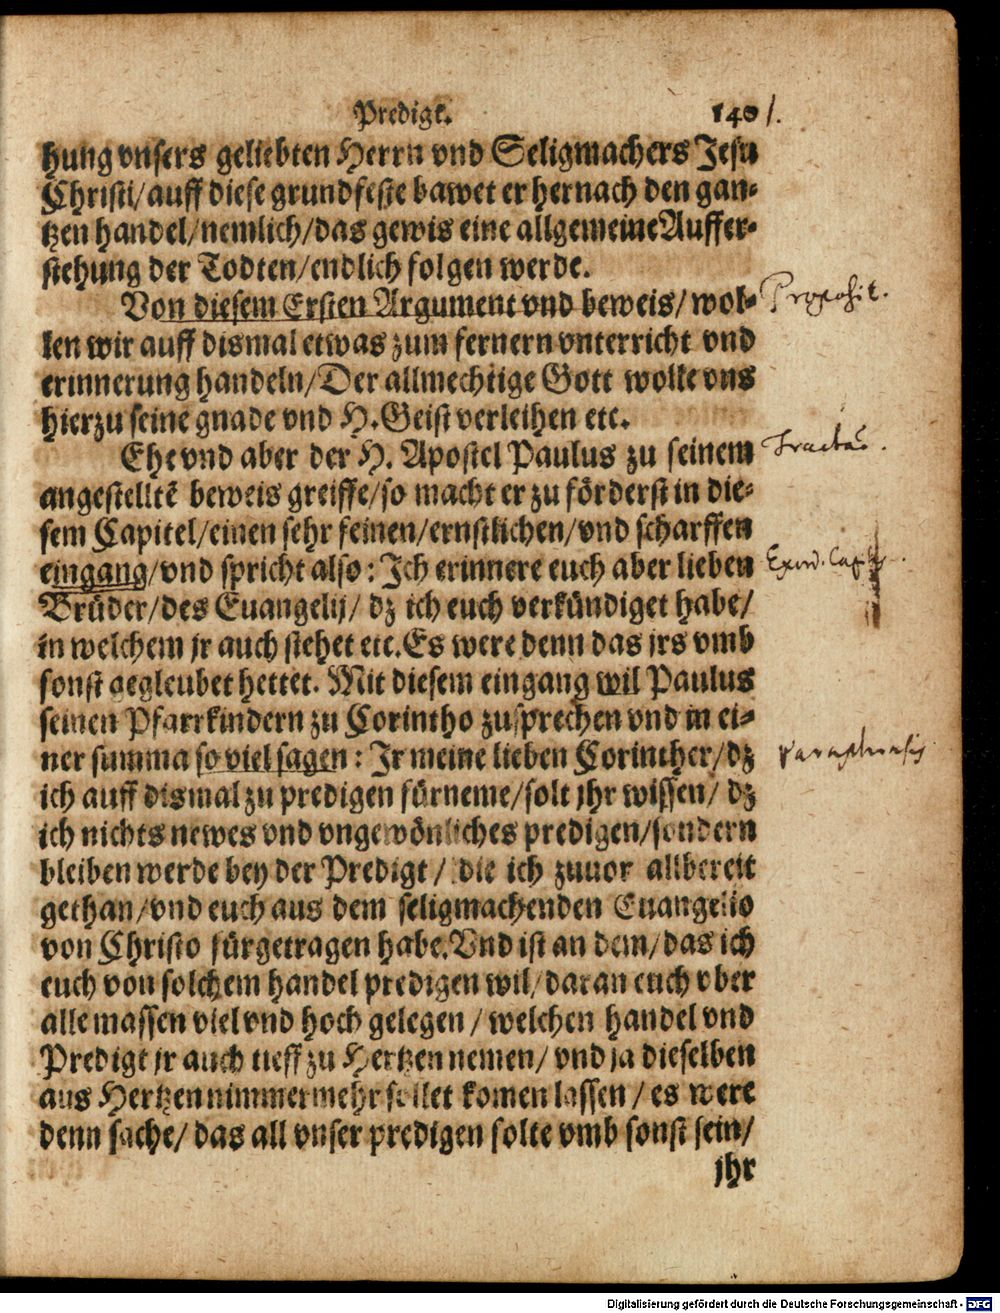 Predigt. 140 /.
hung vnsers geliebten Herrn vnd Seligmachers Jesu
Christi/auff diese grundfeste bawet er hernach den gan-
tzen handel/nemlich/das gewis eine allgemeine Auffer-
stehung der Todten/endlich folgen werde.
Von diesem Ersten Argument vnd beweis/wol- Proposit.
len wir auff dismal etwas zum fernern vnterricht vnd
erinnerung handeln/Der allmechtige Gott wolle vns
hierzu seine gnade vnd H.Geist verleihen etc.
Ehe vnd aber der H. Apostel Paulus zu seinem
angestelltē beweis greiffe/so macht er zu förderst in die-
sem Capitel/einen sehr feinen/ernstlichen/vnd scharffen
eingang/vnd spricht also: Ich erinnere euch aber lieben Exord.
Brüder/des Euangelij/ dz ich euch verkündiget habe/
in welchem jr auch stehet etc. Es were denn das jrs vmb
sonst gegleubet hettet. Mit diesem eingang wil Paulus
seinen Pfarrkindern zu Corintho zusprechen vnd in ei-
ner summa so viel sagen: Ir meine lieben Corinther/dz paraphrasis
ich auff dismal zu predigen fürneme/solt jhr wissen/ dz
ich nichts newes vnd vngewönliches predigen/sondern
bleiben werde bey der Predigt / die ich zuuor allbereit
gethan/vnd euch aus dem seligmachenden Euangelio
von Christo fürgetragen habe.Vnd ist an dem/das ich
euch von solchem handel predigen wil/daran euch vber
alle massen viel vnd hoch gelegen / welchen handel vnd
Predigt jr auch tieff zu Hertzen nemen/ vnd ja dieselben
aus Hertzen nimmermehr sollet komen lassen / es were
denn sache/ das all vnser predigen solte vmb sonst sein/
jhr
Digitalisierung gefördert durch die Deutsche Forschungsgemeinschaft - DFG